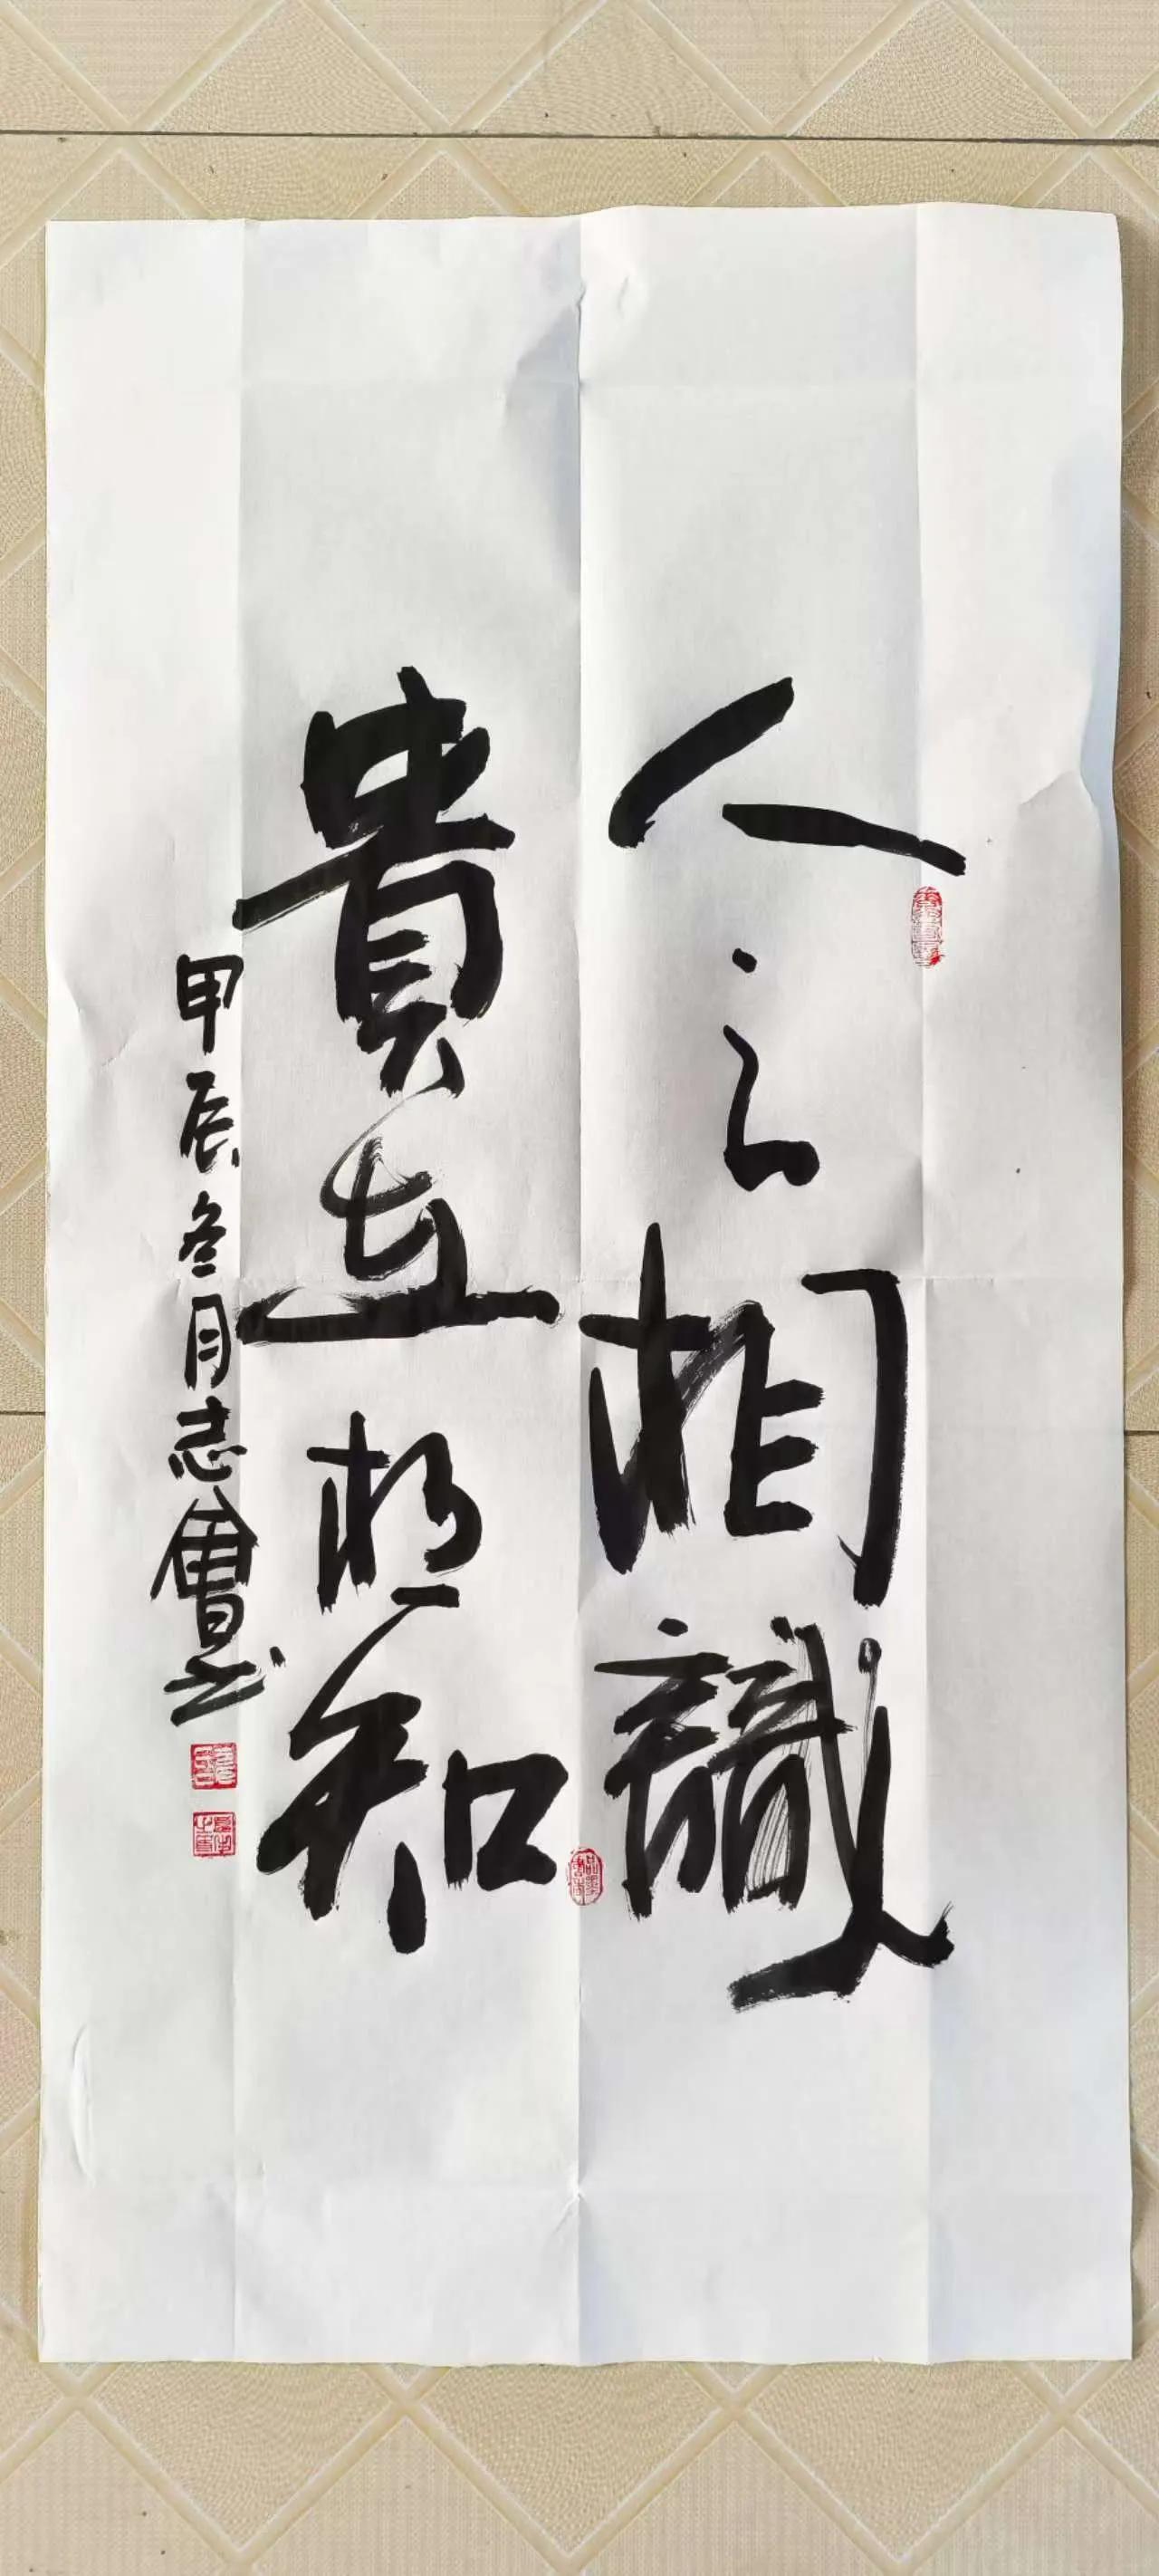 人之相識
貴在相知
甲辰冬月志會书